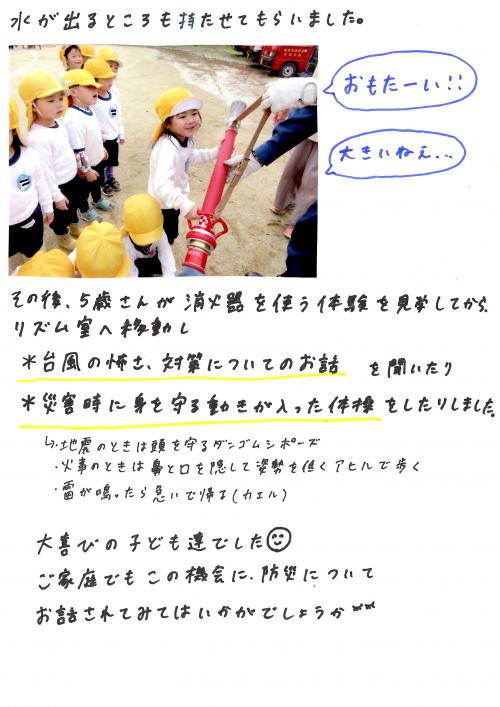 水が出るところも持たせてもらいました。
おもたーい!!
大きいねぇ...
その後、5歳さんが消火器を使う体験を見学してから、
リズム室へ移動し
*台風の怖さ、対策についてのお話 を聞いたり
*災害時に身を守る動きが入った体操をしたりしました。
↳・地震のときは頭を守るダンゴムシポーズ
・火事のときは鼻と口を隠して姿勢を低くアヒルで歩く
・雷が鳴ったら急いで帰る(カエル)
大喜びの子ども達でした
ご家庭でもこの機会に、防災について
お話されてみてはいかがでしょうか